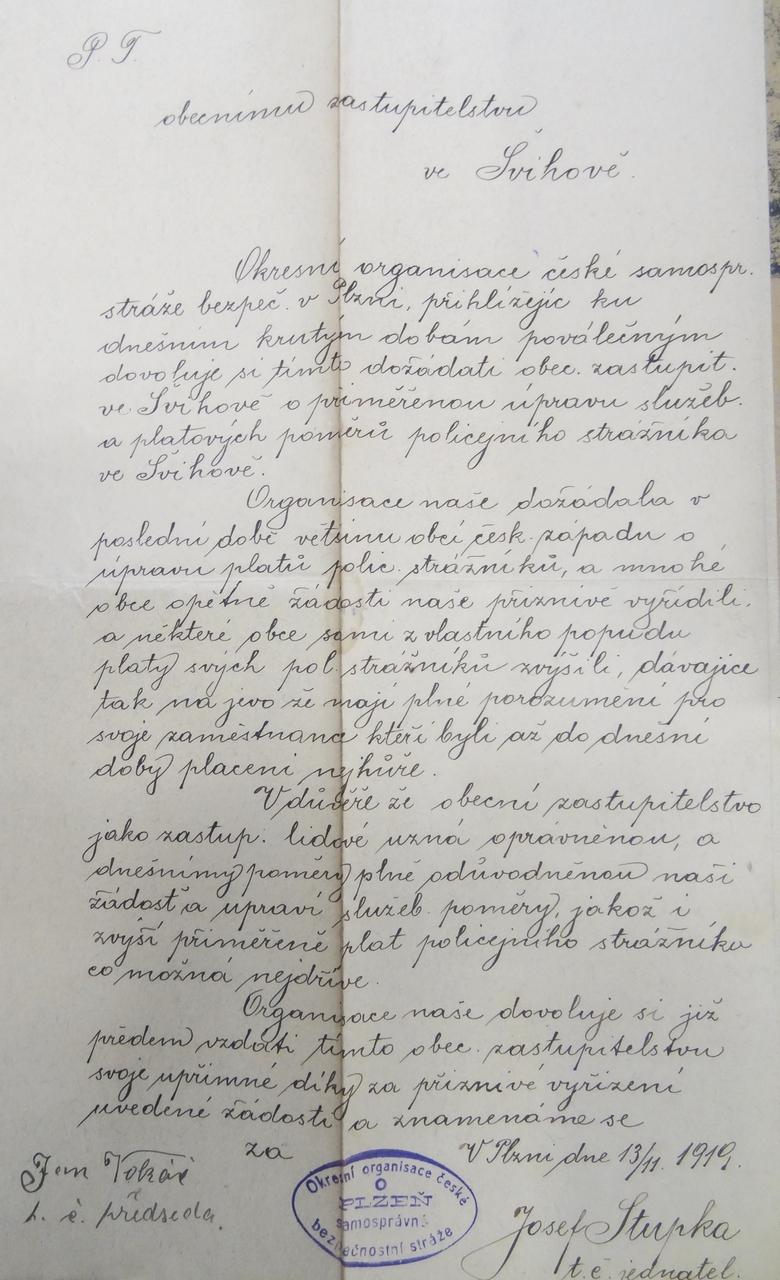 P. T.
obecnímu zastupitelstvu
ve Švihově.
Okresní organisace české samospr.
stráže bezpeč. v Plzni, přihlížejíc ku
dnešním krutým dobám poválečným
dovoluje si tímto dožádati obec. zastupit.
ve Švihově o přiměřenou úpravu služeb.
a platových poměrů policejního strážníka
ve Švihově.
Organisace naše dožádala v
poslední době většinu obcí česk. západu o
úpravu platů polic. strážníků, a mnohé
obce opětně žádosti naše příznivě vyřídili,
a některé obce sami z vlastního popudu
platy svých pol. strážníků zvýšili, dávajíce
tak na jevo že mají plné porozumění pro
svoje zaměstnance kteří byli až do dnešní
doby placeni nejhůře.
V důvěře že obecní zastupitelstvo
jako zastup. lidové uzná oprávněnou, a
dnešnímy poměry plně odůvodněnou naši
žádost a upraví služeb. poměry, jakož i
zvýší přiměřeně plat policejního strážníka
co možná nejdříve.
Organisace naše dovoluje si již
předem vzdáti tímto obec. zastupitelstvu
svoje upřímné díky za příznivé vyřízení
uvedené žádosti a znamenáme se
za
V Plzni dne 13/11. 1919.
Jan
t. č. předseda.
Okresní organisace české
PLZEŇ
samosprávné
bezpečnostní stráže
Josef Stupka
t. č. jednatel.